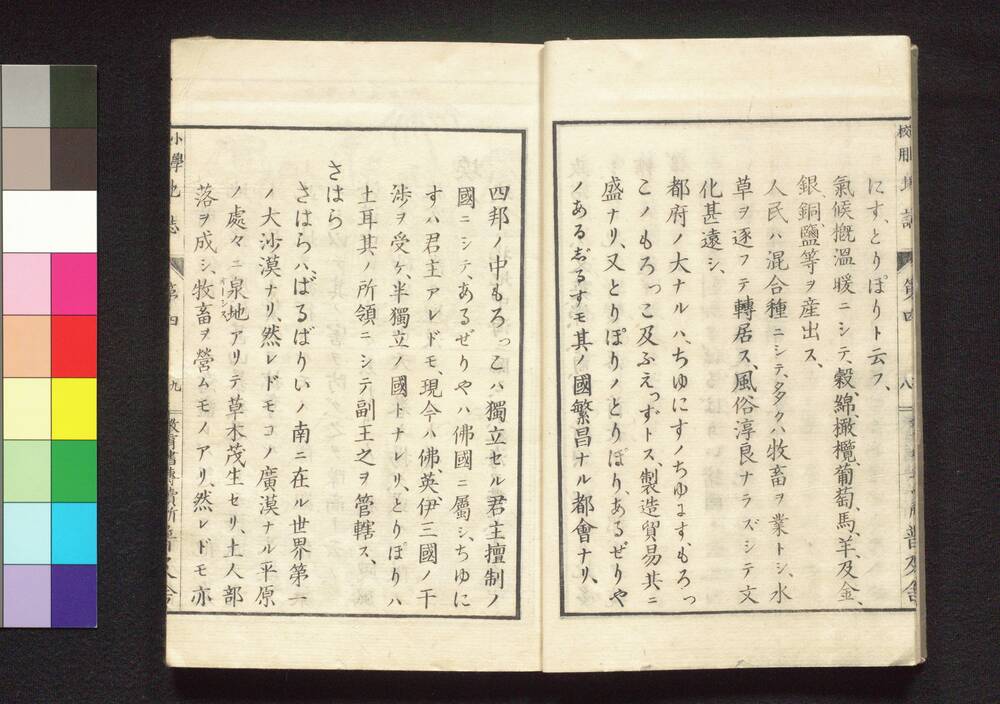 にす、とりぽりト云フ、
氣候槪溫暖ニシテ、穀、綿、橄欖、葡萄、馬、羊、及金、
銀、銅、鹽等ヲ産出ス、
人民ハ混合種ニシテ、多クハ牧畜ヲ業トシ、水
草ヲ逐フテ轉居ス、風俗淳良ナラズシテ文
化甚遠シ、
都府ノ大ナルハ、ちゆにすノちゆにす、もろっ
こノもろっこ及ふえっずトス、製造貿易共ニ
盛ナリ、又とりぽりノとりぽり、あるぜりや
ノあるぢるすモ其ノ國繁昌ナル都會ナリ、
四邦ノ中もろっこハ獨立セル君主擅制ノ
國ニシテ、あるぜりやハ佛國ニ屬シ、ちゆに
すハ君主アレドモ、現今ハ佛、英、伊三國ノ干
渉ヲ受ケ半獨立ノ國トナレリ、とりぽりハ
土耳其ノ所領ニシテ副王之ヲ管轄ス、
さはら
さはらハ、ばるばりいノ南ニ在ル世界第一
ノ大沙漠ナリ、然レドモコノ廣漠ナル平原
ノ處々ニ泉地アリテ草木茂生セリ、土人部
オーシス
落ヲ成シ、牧畜ヲ營ムモノアリ、然レドモ亦
小學地誌 第四 九